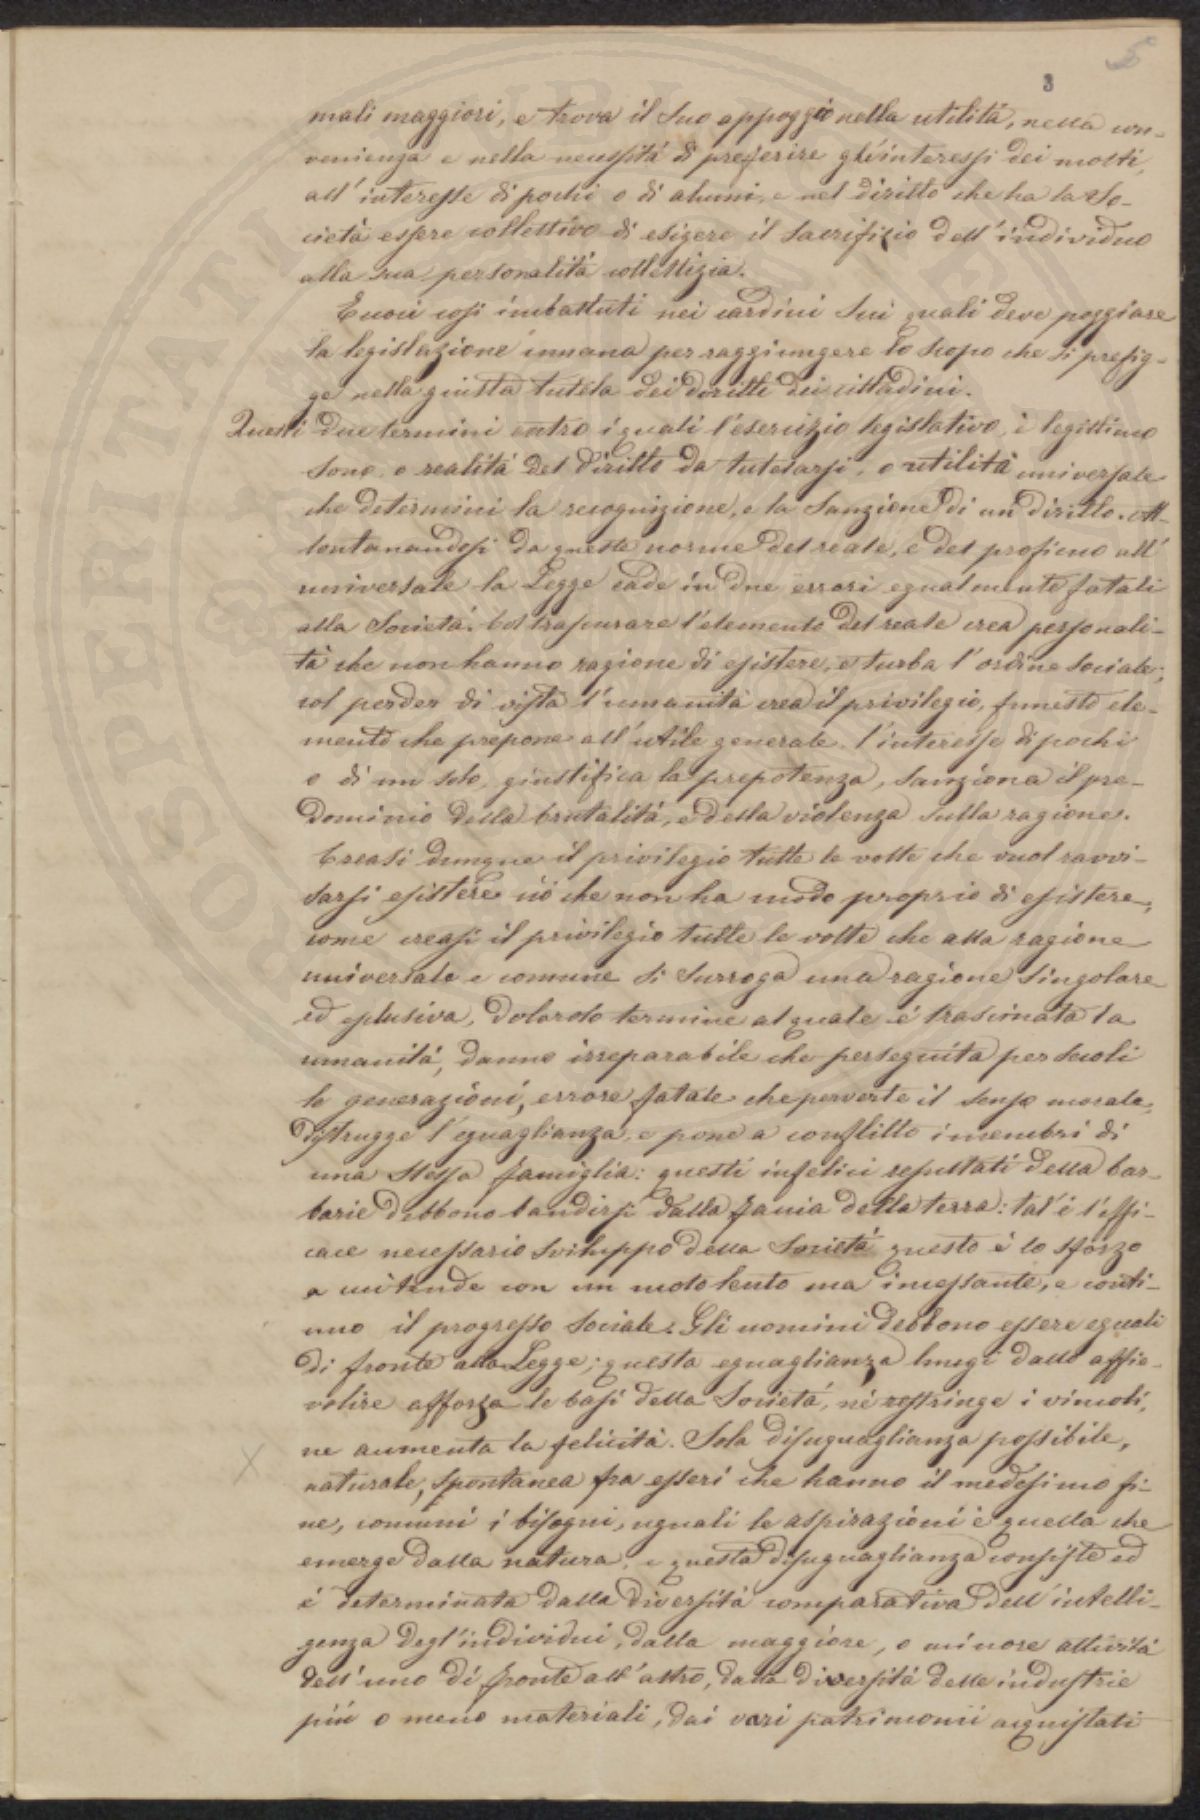 5
3
mali maggiori, e trova il suo appoggio nella utilità, nella con-
venienza e nella necessità di preferire gl'interessi dei molti,
all'interesse di pochi o di alcuni, e nel diritto che ha la So-
cietà essere collettivo di esigere il sacrifizio dell'individuo
alla sua personalità collettizia.
Eccoci così imbattuti nei cardini sui quali deve poggiare
la legislazione umana per raggiungere lo scopo che si prefig-
ge nella giusta tutela dei diritti dei cittadini.
Questi due termini entro i quali l'esercizio legislativo è legittimo
sono, o realità del diritto da tutelarsi, o utilità universale
che determini la recognizione, e la sanzione di un diritto. Al-
lontanandosi da queste norme del reale, e del proficuo all'
universale la Legge cade in due errori egualmente fatali
alla Società. Col trascurare l'elemento del reale crea personali-
tà che non hanno ragione di esistere, e turba l'ordine sociale;
col perder di vista l'umanità crea il privilegio, funesto ele-
mento che prepone all'utile generale l'interesse di pochi
o di un solo, giustifica la prepotenza, sanziona il pre-
dominio della brutalità, e della violenza sulla ragione.
Creasi dunque il privilegio tutte le volte che vuol ravvi-
sarsi esistere ciò che non ha modo proprio di esistere,
come creasi il privilegio tutte le volte che alla ragione
universale e comune si surroga una ragione singolare
ed esclusiva. Doloroso termine al quale è trascinata la
umanità, danno irreparabile che perseguita per secoli
le generazioni, errore fatale che perverte il senso morale,
distrugge l'eguaglianza, e pone a conflitto i membri di
una stessa famiglia: questi infelici resultati della bar-
barie debbono bandirsi dalla faccia della terra: tal'è l'effi-
cace necessario sviluppo della Società questo è lo sforzo
a cui tende con un moto lento ma incessante, e conti-
nuo il progresso sociale. Gli uomini debbono essere eguali
di fronte alla Legge; questa eguaglianza lungi dallo affie-
volire afforza le basi della Società, nè restringe i vincoli,
ne aumenta la felicità. Sola disuguaglianza possibile,
naturale, spontanea fra esseri che hanno il medesimo fi-
ne, comuni i bisogni, uguali le aspirazioni è quella che
emerge dalla natura, e questa disuguaglianza consiste ed
è determinata dalla diversità comparativa dell'intelli-
genza degl'individui, dalla maggiore, o minore attività
dell'uno di fronte all'altro, dalla diversità delle industrie
più o meno materiali, dai vari patrimonii acquistati
PROSPERITATI